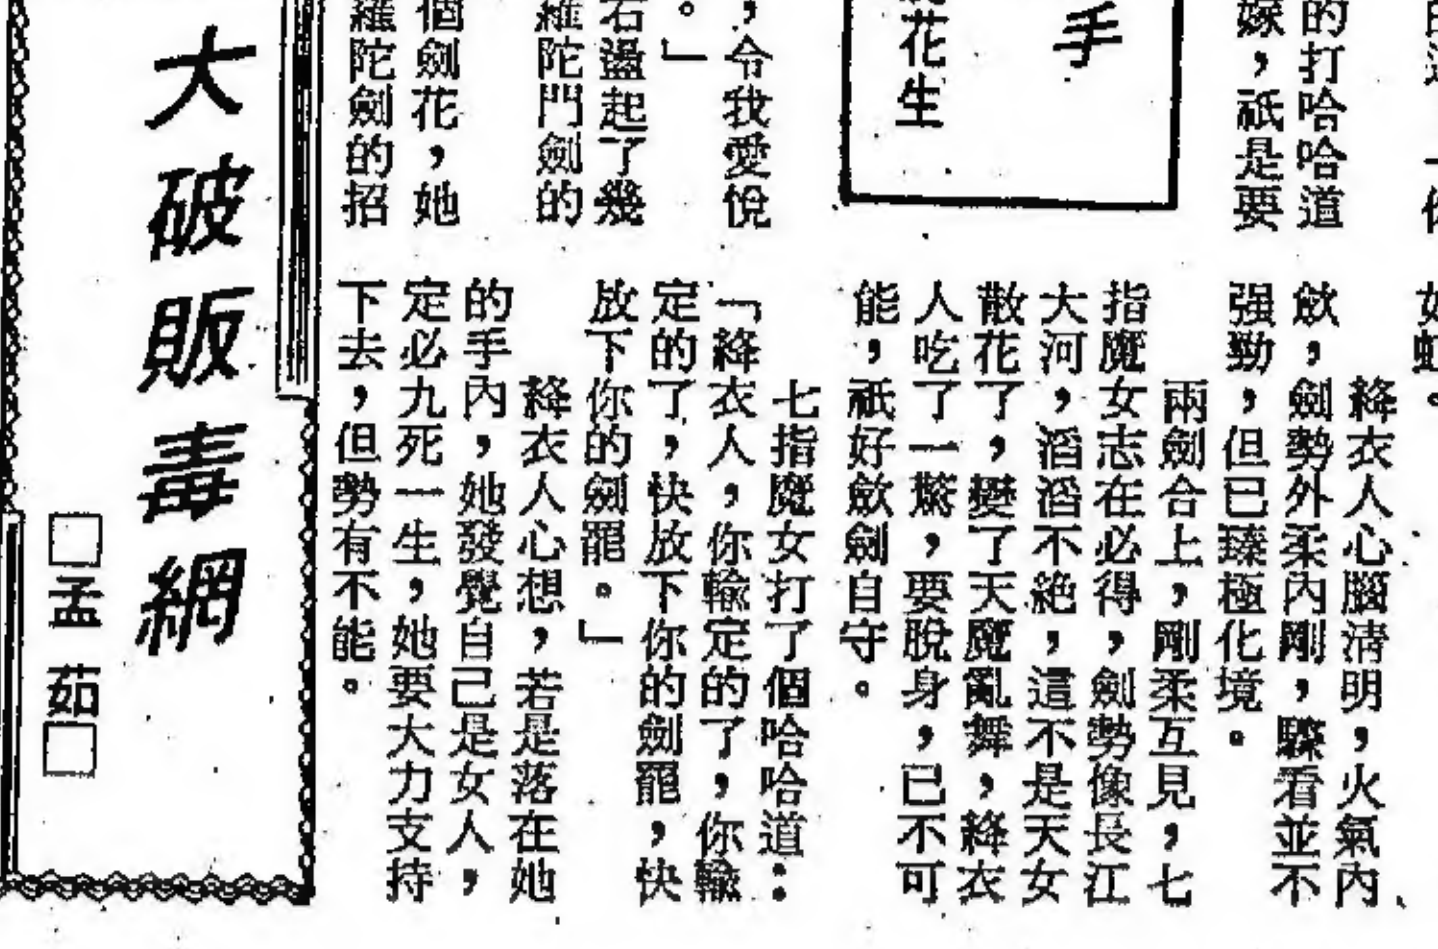 的打哈哈道
嫁，祇是要
手
花生
，令我愛悅
。」
右盪起了幾
羅陀門劍的
個劍花，她
羅陀劍的招
如虹。
絳衣人心腦淸明，火氣內
歛，劍勢外柔內剛，驟看並不
强勁，但已臻極化境。
兩劍合上，剛柔互見，七
指魔女志在必得，劍勢像長江
大河，滔滔不絶，這不是天女
散花了，變了天魔亂舞，絳衣
人吃了一驚，要脫身，已不可
能，祇好歛劍自守。
七指魔女打了個哈哈道：
「絳衣人，你輸定的了，你輸
定的了，快放下你的劍罷，快
放下你的劍罷。」
絳衣人心想，若是落在她
的手內，她發覺自己是女人，
定必九死一生，她要大力支持
下去，但勢有不能。
大破販毒網
□孟茹□